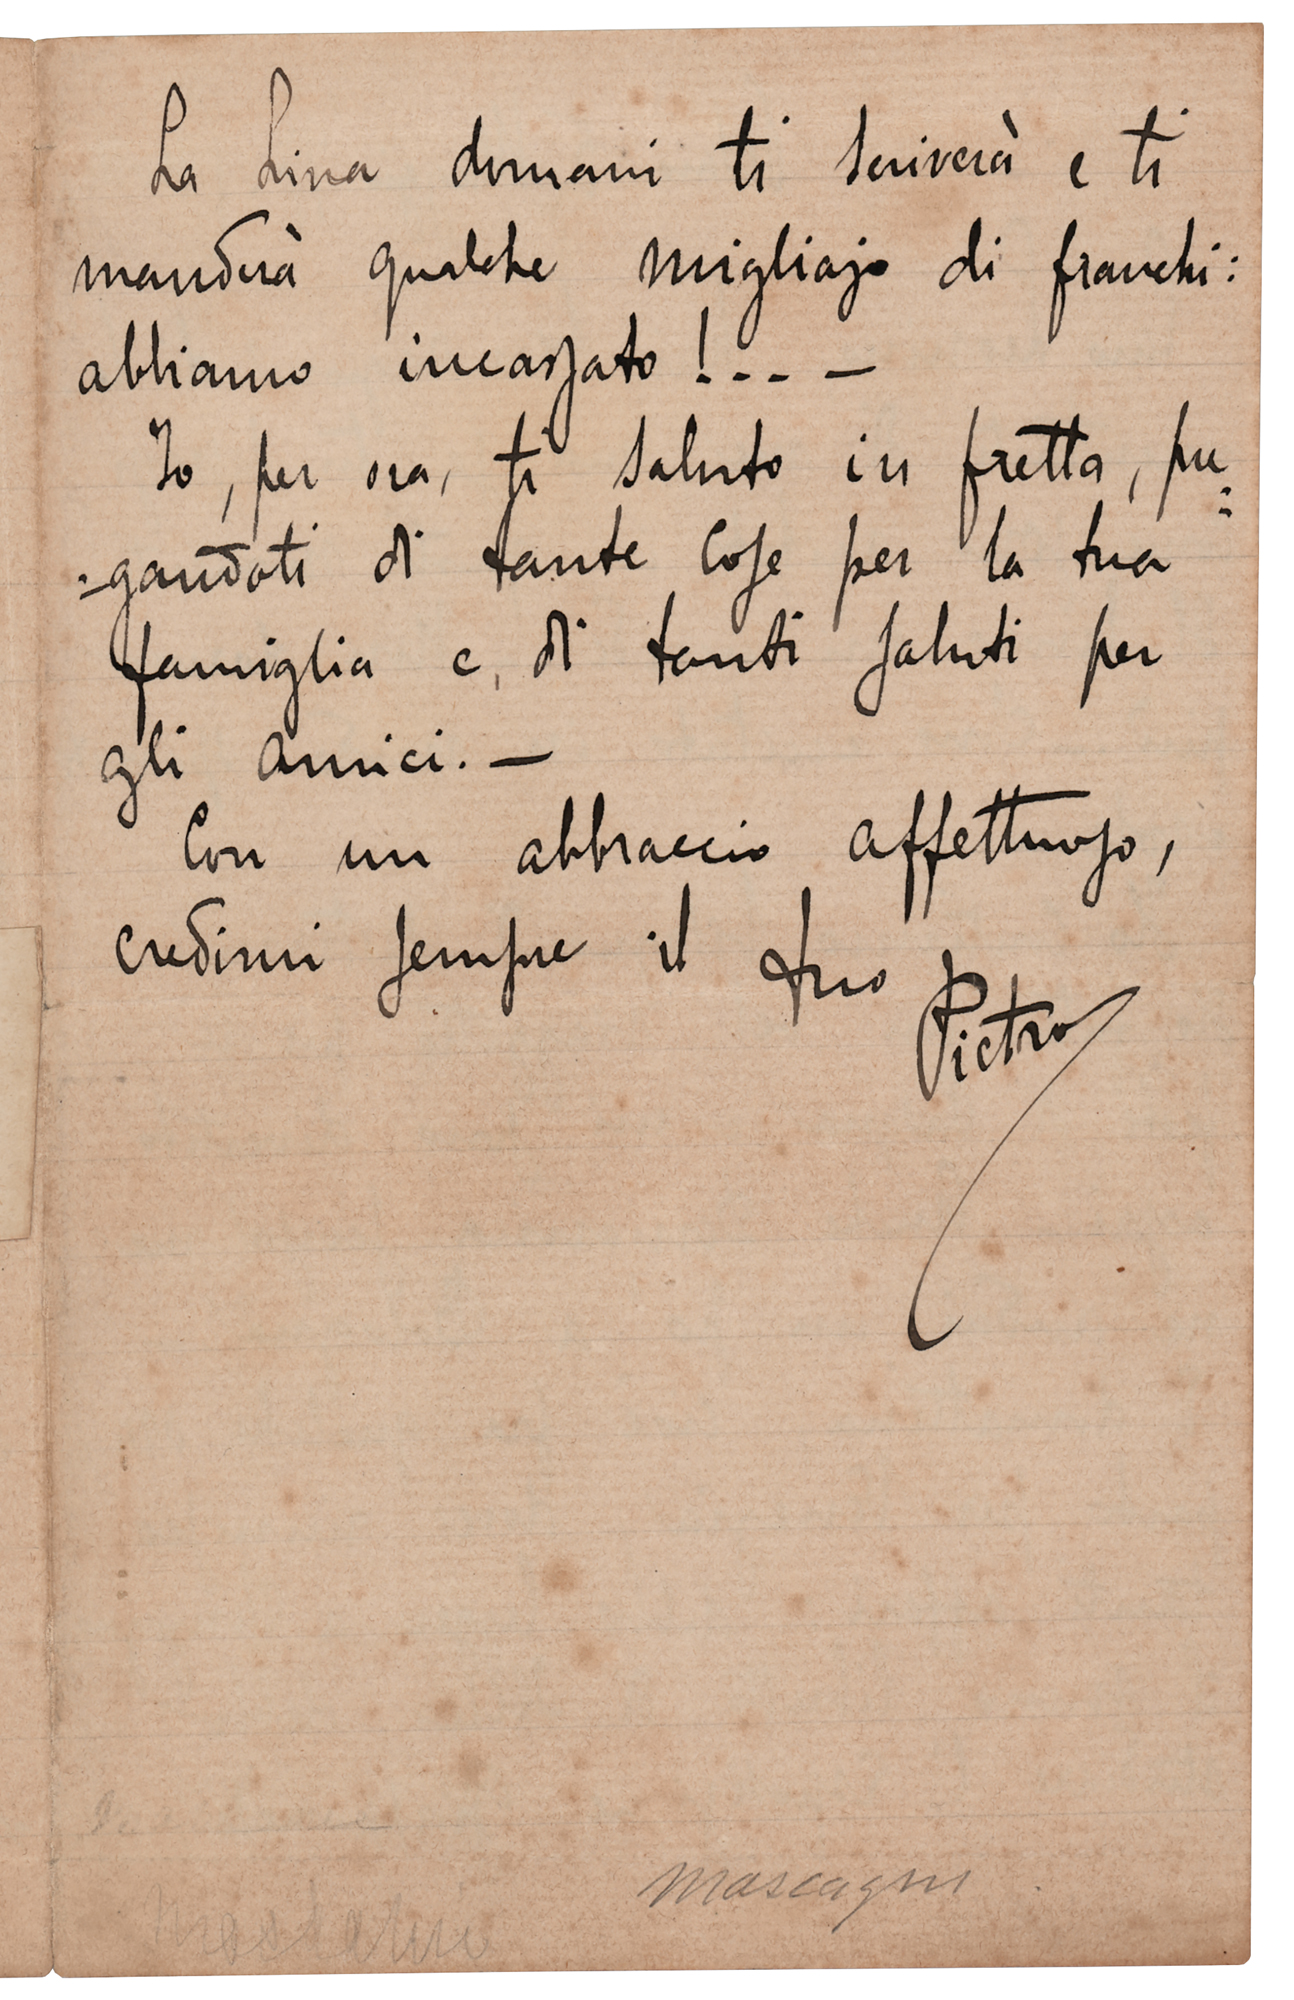 La Lina domani ti scriverà e ti
manderà qualche migliajo di franchi:
abbiamo incassato!... —
Io, per ora, ti saluto in fretta, pre=
=gandoti di tante cose per la tua
famiglia e, di tanti saluti per
gli amici. —
Con un abbraccio affettuoso,
credimi sempre il tuo
Pietro
Mascagni